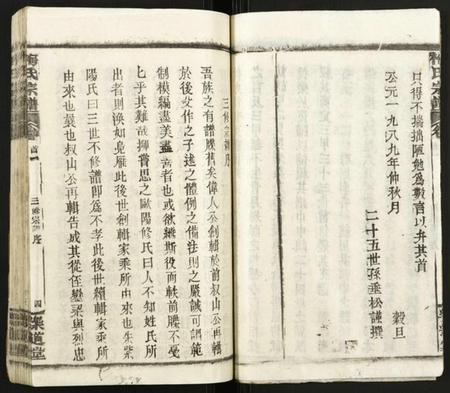 只得不揣拙陋勉為數言以弁其首
公元一九八九年仲秋月
穀旦
二十五世孫垂松謹撰
梅氏宗譜
三修宗譜序
吾族之有譜牒舊矣偉人公創輯於前叔山公再輯
於後文作之子述之體例之備法則之嚴誠可謂範
制模編盡美盡善者也或欲繼斯役而軼前賸不憂
乎其難哉抑嘗思之歐陽修氏曰人不知姓氏所
出者則渙如鳧雁此後世創輯家乘所由來也朱紫
陽氏曰三世不修譜即為不孝此後世續輯家乘所
由來也曩也叔山公再輯告成其從侄變梁與烈忠
梅氏宗譜
首
三修宗譜序
四
渠道堂